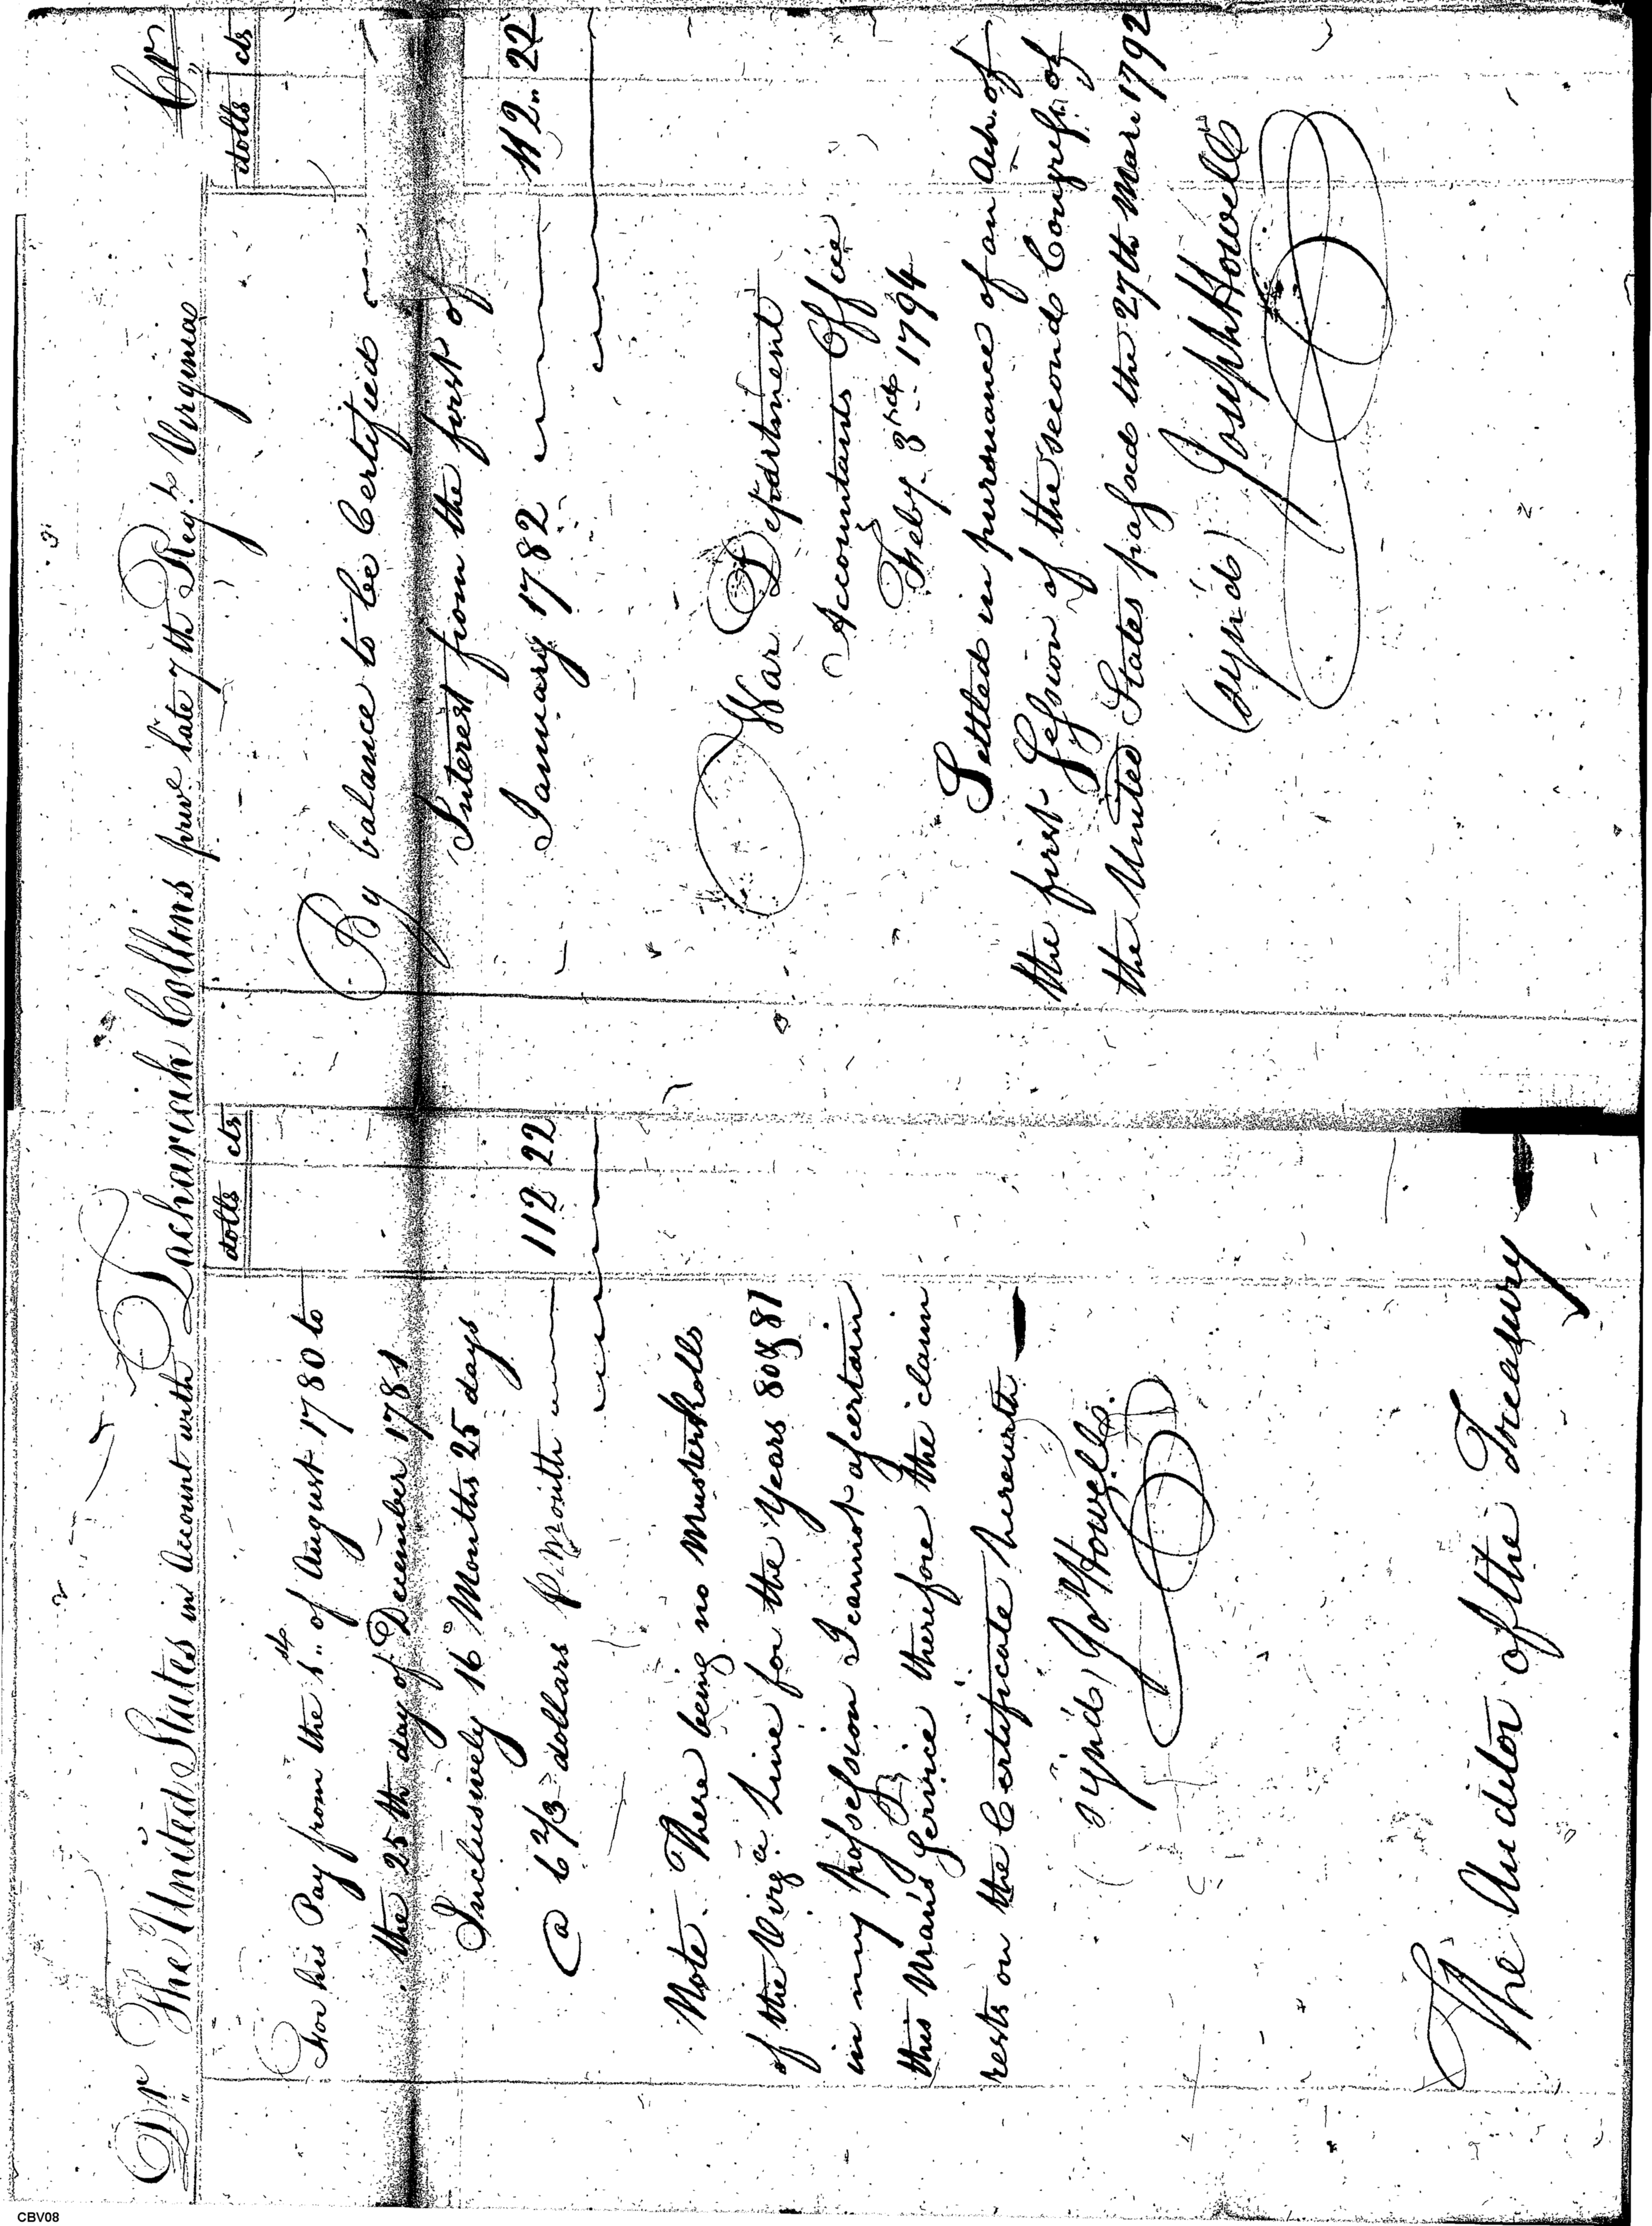 Dr The United States in Account with Zachariah Collins priv.e late 7th Reg.t Virginia Cr
dolls cts
For his Pay from the 1st of August 1780 to
the 25th day of December 1781
Inclusively 16 Months 25 days
@ 6 2/3 dollars P Month 112 22
Note. There being no Muster Rolls
of the Virg.a Line for the Years 80 & 81
in my possession I cannot ascertain
this Man's Service therefore the claim
rests on the Certificate herewith
(sign'd) Jo Howell.
The Auditor of the Treasury
dolls cts
By balance to be Certified
Interest from the first of
January 1782 112 22
War Department
Accountants Office
Feby. 3rd 1794
Settled in pursuance of an Act of
the first Session of the second Congress of
the United States passed the 27th Mar. 1792
(sign'd) Joseph Howell
CBV08